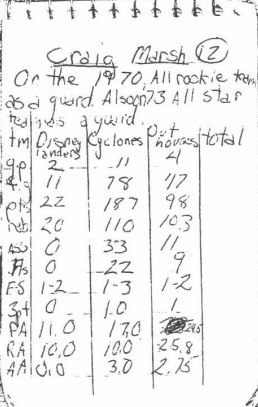 Craig Marsh 12
On the 1970 All rookie team
as a guard. Also on 73 All star
team as a guard.
tm Disney landers Cyclones Out houses total
g.p. 2 11 4
f.g. 11 78 47
pts 22 187 98
reb 20 110 103
Ass 0 33 11
0 22 9
F-S 1-2 1-3 1-2
3pt 0 10 1
PA 11.0 17.0 24.5
RA 10.0 10.0 25.8
AA 0.0 3.0 2.75